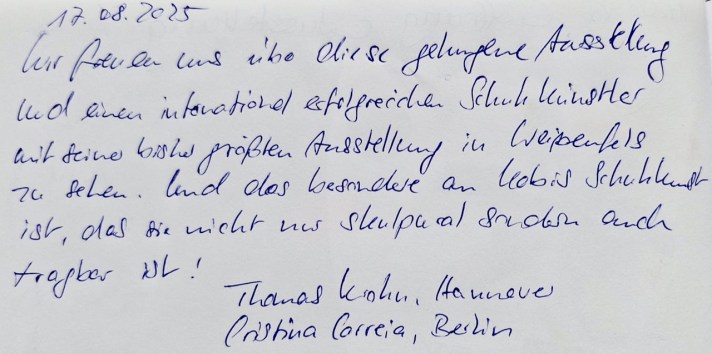 17.08.2025
Wir freuen uns über diese gelungene Ausstellung
und einen international erfolgreichen Schuhkünstler
mit seiner bisher größten Ausstellung in Weißenfels
zu sehen. Und das besondere an Kobis Schuhkunst
ist, das sie nicht nur skulptural sondern auch
tragbar ist!
Thomas Krohn, Hannover
Cristina Correia, Berlin